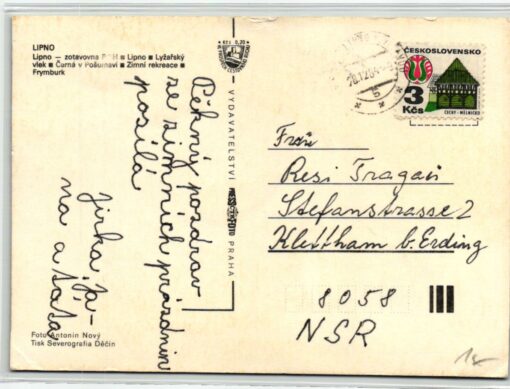 LIPNO
Lipno — zotavovna ROH ■ Lipno ■ Lyžařský
vlek ■ Černá v Pošumaví ■ Zimní rekreace ■
Frymburk
Pěkný pozdrav
ze zimních prázdnin
posílá
Jirka, Ja-
na a táta
Foto Antonín Nový
Tisk Severografia Děčín
VYDAVATELSTVÍ
PRAHA
ČESKOSLOVENSKO
3
Kčs
ČECHY - MĚLNICKO
Resi Tragari
Stefanstrasse 2
Klettham b. Erding
8058
NSR